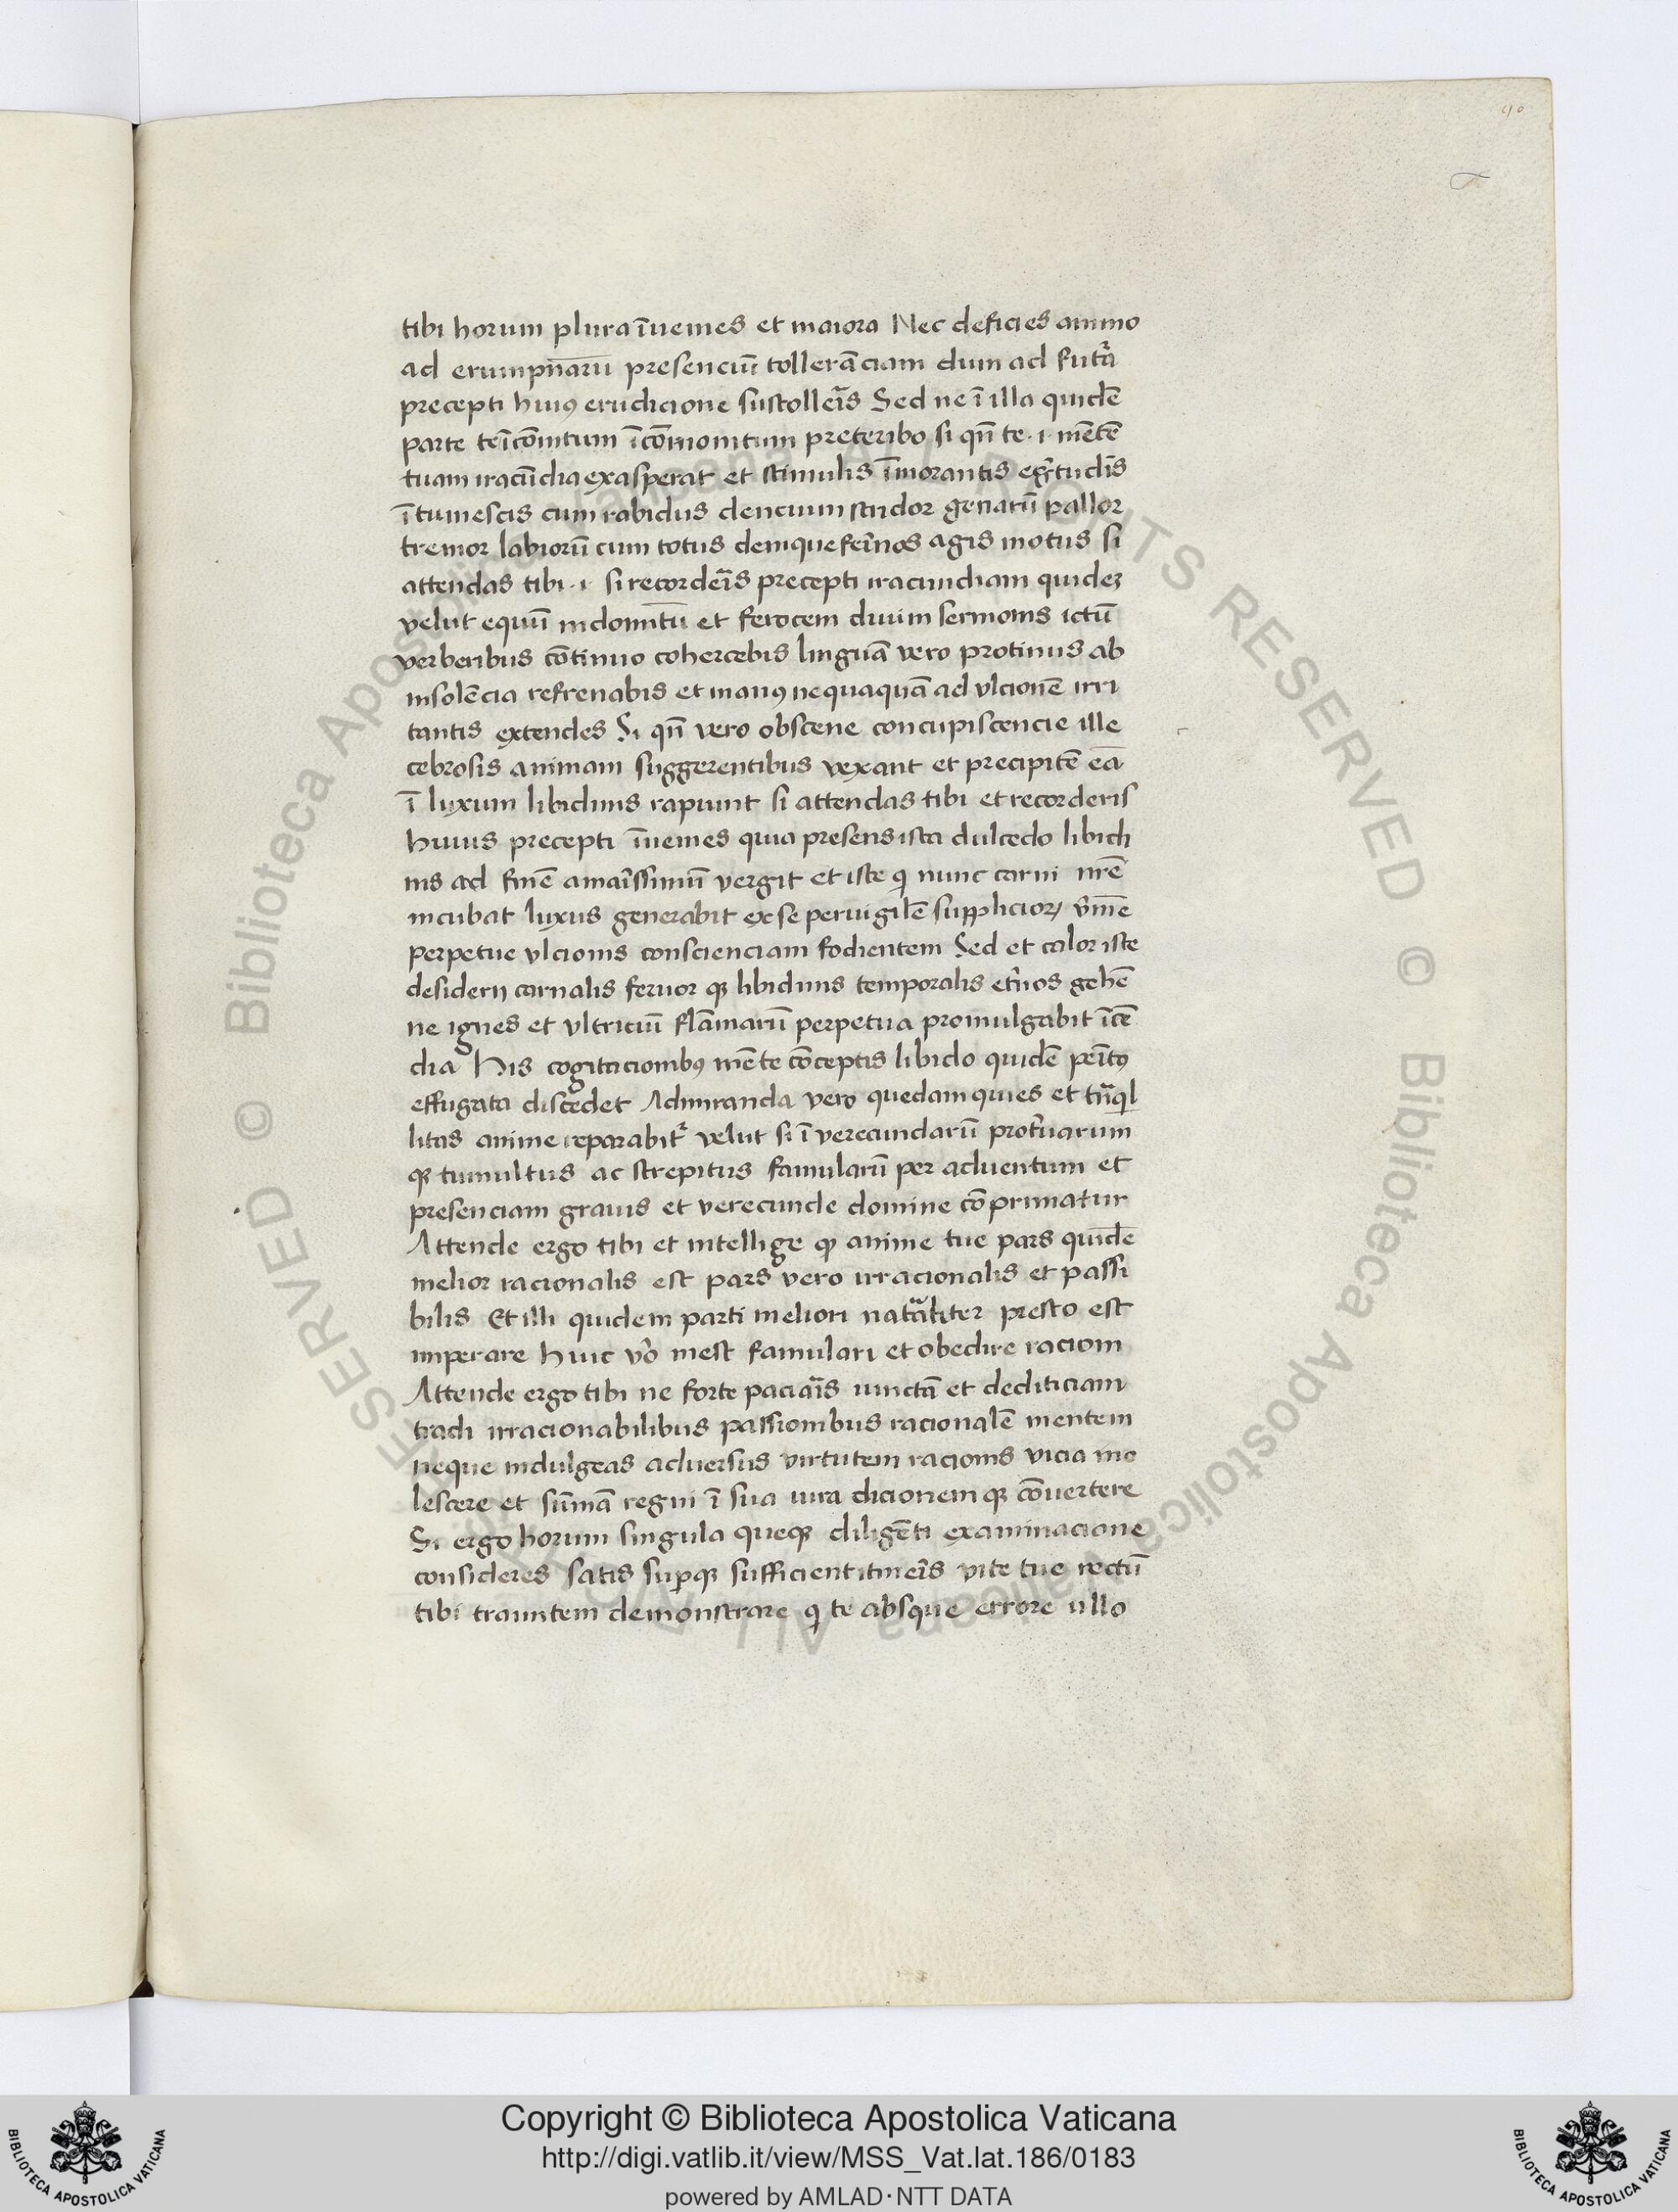 90
tibi horum plura īuenies et maiora Nec deficies animo
ad erumpnarū presenciū tollerāciam dum ad futᷓa
precepti huiꝰ erudicione sustolleris Sed ne ī illa quidē
parte te īcōmonitum preteribo si qn̄ te .i. mētē
tuam iracūdia exasperat et stimulis īmorantis egritudīs
ītumescis cum rabidus dencium stridor genarū pallor
tremor labiorū cum totus denique feīnos agis motus si
attendas tibi .i. si recorderis precepti iracundiam quideꝫ
velut equū indomitū et ferocem diuini sermonis ictū
verberibus cōtinuo cohercebis linguā vero protinus ab
insolēcia refrenabis et manꝰ nequaquā ad vlcionē irri
tantis extendes Si qn̄ vero obscene concupiscencie ille
cebrosis animam suggerentibus vexant et precipitē eā
ī luxum libidinis rapiunt si attendas tibi et recorderis
huius precepti īuenies quia presens ista dulcedo libidi
nis ad finē amarissimū vergit et iste qͥ nunc carni nr̄e
incubat luxus generabit ex se peruigilē supplicioꝝ v̓mē
perpetue vlcionis conscienciam fodientem Sed et calor iste
desiderij carnalis feruor qꝫ libidinis temporalis et̓nos gehē
ne ignes et vltriciū flāmarū perpetua promulgabit īcē
dia His cogitacionibꝰ mēte cōceptis libido quidē peītꝰ
effugata discedet Admiranda vero quedam quies et tᷓnqͥl
litas anime reparabitᷣ velut si īverecundarū prot̓uarum
qꝫ tumultus ac strepitus famularū per aduentum et
presenciam grauis et verecunde domine cōprimatur
Attende ergo tibi et intellige qꝫ anime tue pars quidē
melior racionalis est pars vero irracionalis et passi
bilis Et illi quidem parti meliori natᷓaliter presto est
imperare huic v̊o inest famulari et obedire racioni
Attende ergo tibi ne forte paciaris iunctā et dediticiam
tradi irracionabilibus passionibus racionalē mentem
neque indulgeas aduersus virtutem racionis vicia ino
lescere et sūmā regni ī sua iura dicionem qꝫ cōuertere
Si ergo horum singula queqꝫ diligēti examinacione
consideres satis suꝑqꝫ sufficient itineris vite tue rectū
tibi tramitem demonstrare qͥ te absque errore ullo
© Biblioteca Apostolica Vaticana ALL RIGHTS RESERVED
© Biblioteca Apostolica Vaticana ALL RIGHTS RESERVED
Copyright © Biblioteca Apostolica Vaticana
http://digi.vatlib.it/view/MSS_Vat.lat.186/0183
powered by AMLAD·NTT DATA
BIBLIOTECA APOSTOLICA VATICANA
BIBLIOTECA APOSTOLICA VATICANA